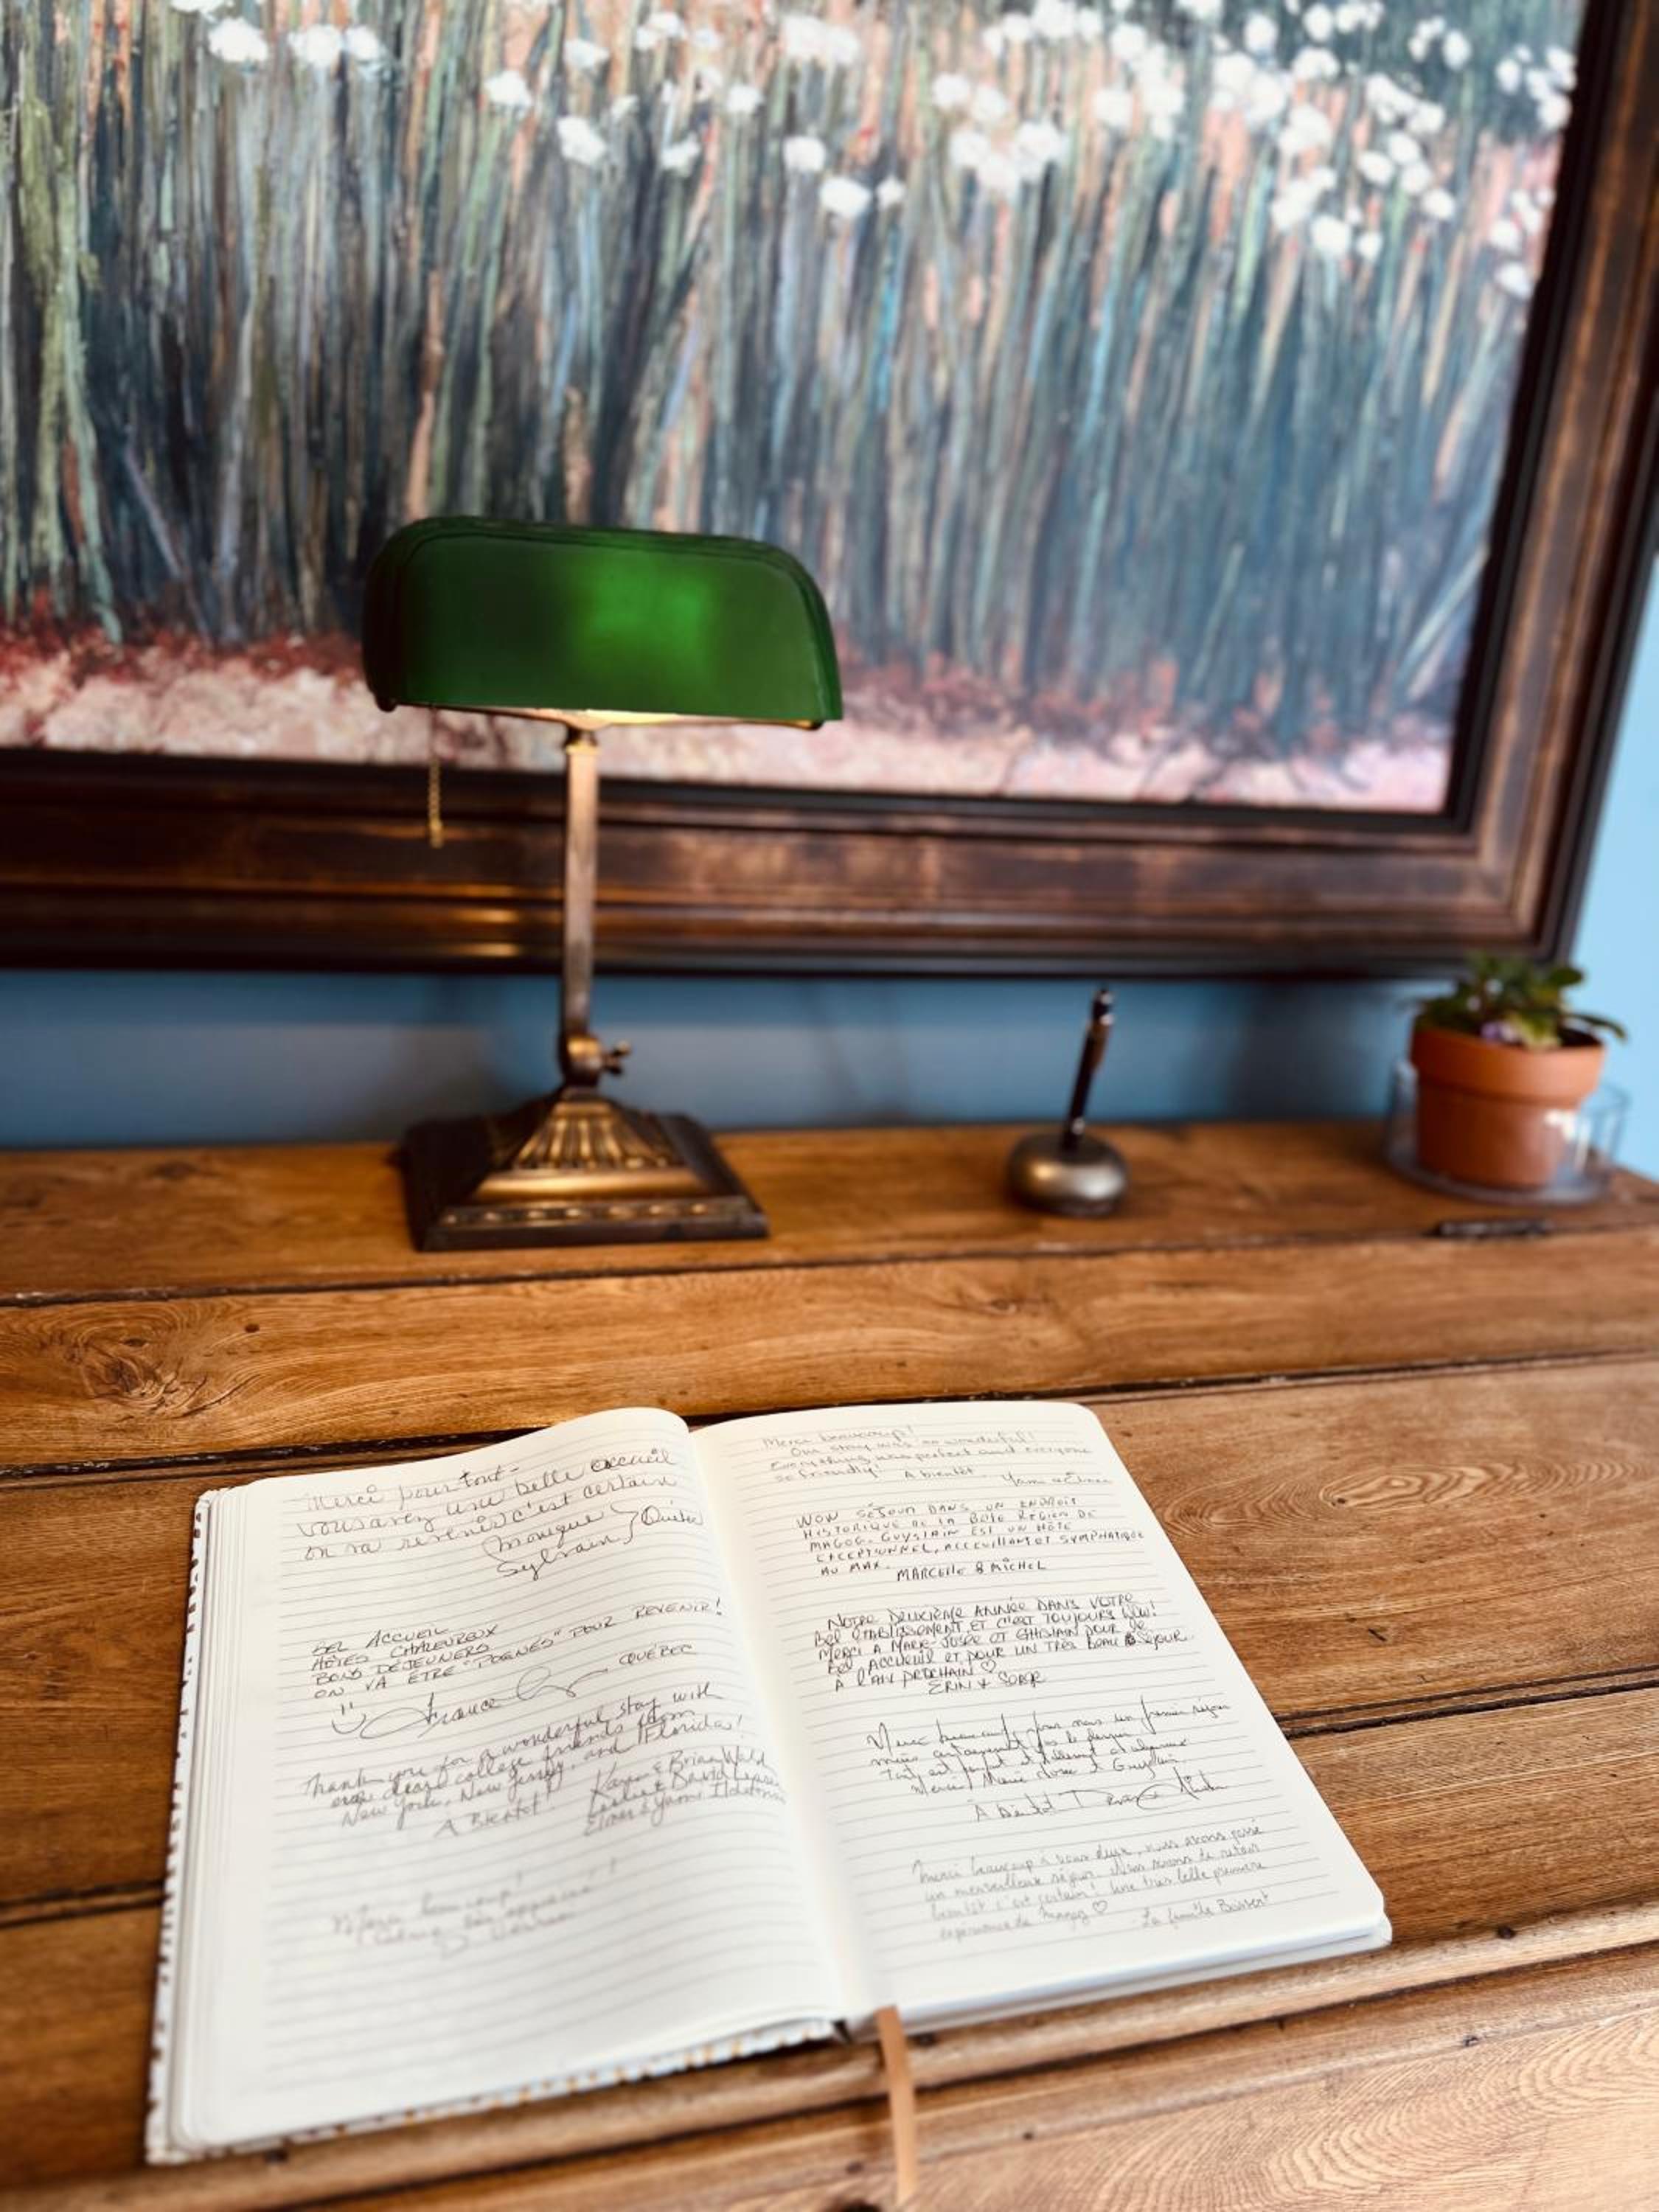 Merci pour tout-
vous avez une belle accueil
on va revenir c'est certain
Monique
Sylvain } Québec
BEL ACCUEIL
HÔTES CHALEUREUX
BONS DÉJEUNERS
ON VA ÊTRE "POGNÉS" POUR REVENIR!
France
QUÉBEC
Thank you for a wonderful stay with
our dear college friends from
New York, New Jersey, and Florida!
À Bientot!
Karen & Brian Wald
Leslie & David
Elmer & Yami
Merci beaucoup!
Merci beaucoup!
Our stay was so wonderful!
Everything was perfect and everyone
so friendly! A bientôt.
WOW SÉJOUR DANS UN ENDROIT
HISTORIQUE DE LA BELLE RÉGION DE
MAGOG. GUYSLAIN EST UN HÔTE
EXCEPTIONNEL, ACCEUILLANT ET SYMPHATIQUE
AU MAX.
MARCELLE & MICHEL
NOTRE DEUXIÈME ANNÉE DANS VOTRE
BEL ÉTABLISSEMENT ET C'EST TOUJOURS WOW!
MERCI A MARIE-JOSÉE ET GHISLAIN POUR LE
BEL ACCUEUIL ET POUR UN TRÈS BEAU SÉJOUR
À L'AN PROCHAIN ♡
ERIN & SERGE
Merci beaucoup, pour nous un premier séjour
mais certainement pas le dernier
Tout est parfait
Merci Marie Josée & Guyslain
À bientôt
Merci beaucoup à vous deux, nous avons passé
un merveilleux séjour. Nous serons de retour
bientôt c'est certain! Une très belle première
expérience de Magog ♡
- La famille Boisvert